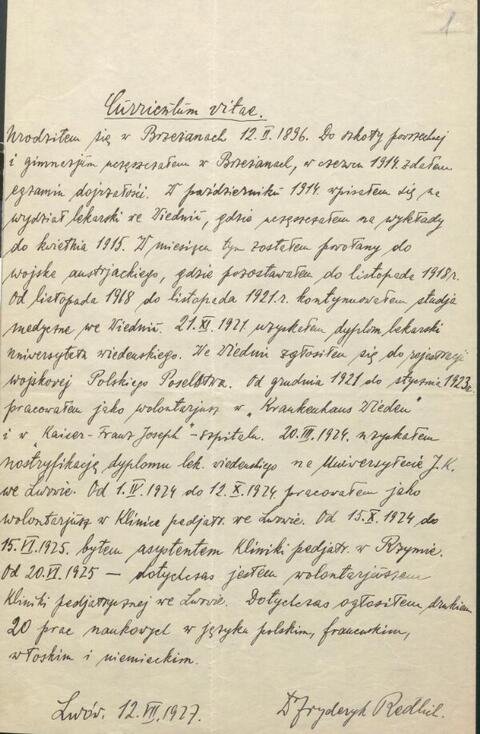 1
Curriculum vitae.
Urodziłem się w Brzeżanach 12.II.1896. Do szkoły powszechnej
i gimnazjum uczęszczałem w Brzeżanach, w czerwcu 1914 zdałem
egzamin dojrzałości. W październiku 1914 wpisałem się na
wydział lekarski we Wiedniu, gdzie uczęszczałem na wykłady
do kwietnia 1915. W miesiącu tym zostałem powołany do
wojska austrjackiego, gdzie pozostawałem do listopada 1918 r.
Od listopada 1968 do listopada 1921 r. kontynuowałem studja
medyczne we Wiedniu. 21.XI.1921 uzyskałem dyplom lekarski
uniwersytetu wiedeńskiego. We Wiedniu zgłosiłem się do rejestracji
wojskowej Polskiego Poselstwa. Od grudnia 1921 do stycznia 1923 r.
pracowałem jako wolontarjusz w „Krankenhaus Wieden"
i w „Kaiser-Franz Joseph"-szpitalu. 20.III.1924. uzyskałem
nostryfikację dyplomu lek. wiedeńskiego na Uniwersytecie J.K.
we Lwowie. Od 1.IV.1924 do 12.X.1924 pracowałem jako
wolontarjusz w Klinice pedjatr. we Lwowie. Od 15.X.1924 do
15.VI.1925. byłem asystentem Kliniki pedjatr. w Rzymie.
Od 20.VI.1925 — dotychczas jestem wolontarjuszem
Kliniki pedjatrycznej we Lwowie. Dotychczas ogłosiłem drukiem
20 prac naukowych w języku polskim, francuskim,
włoskim i niemieckim.
Lwów. 12.VII.1927. Dr Fryderyk Redlich.